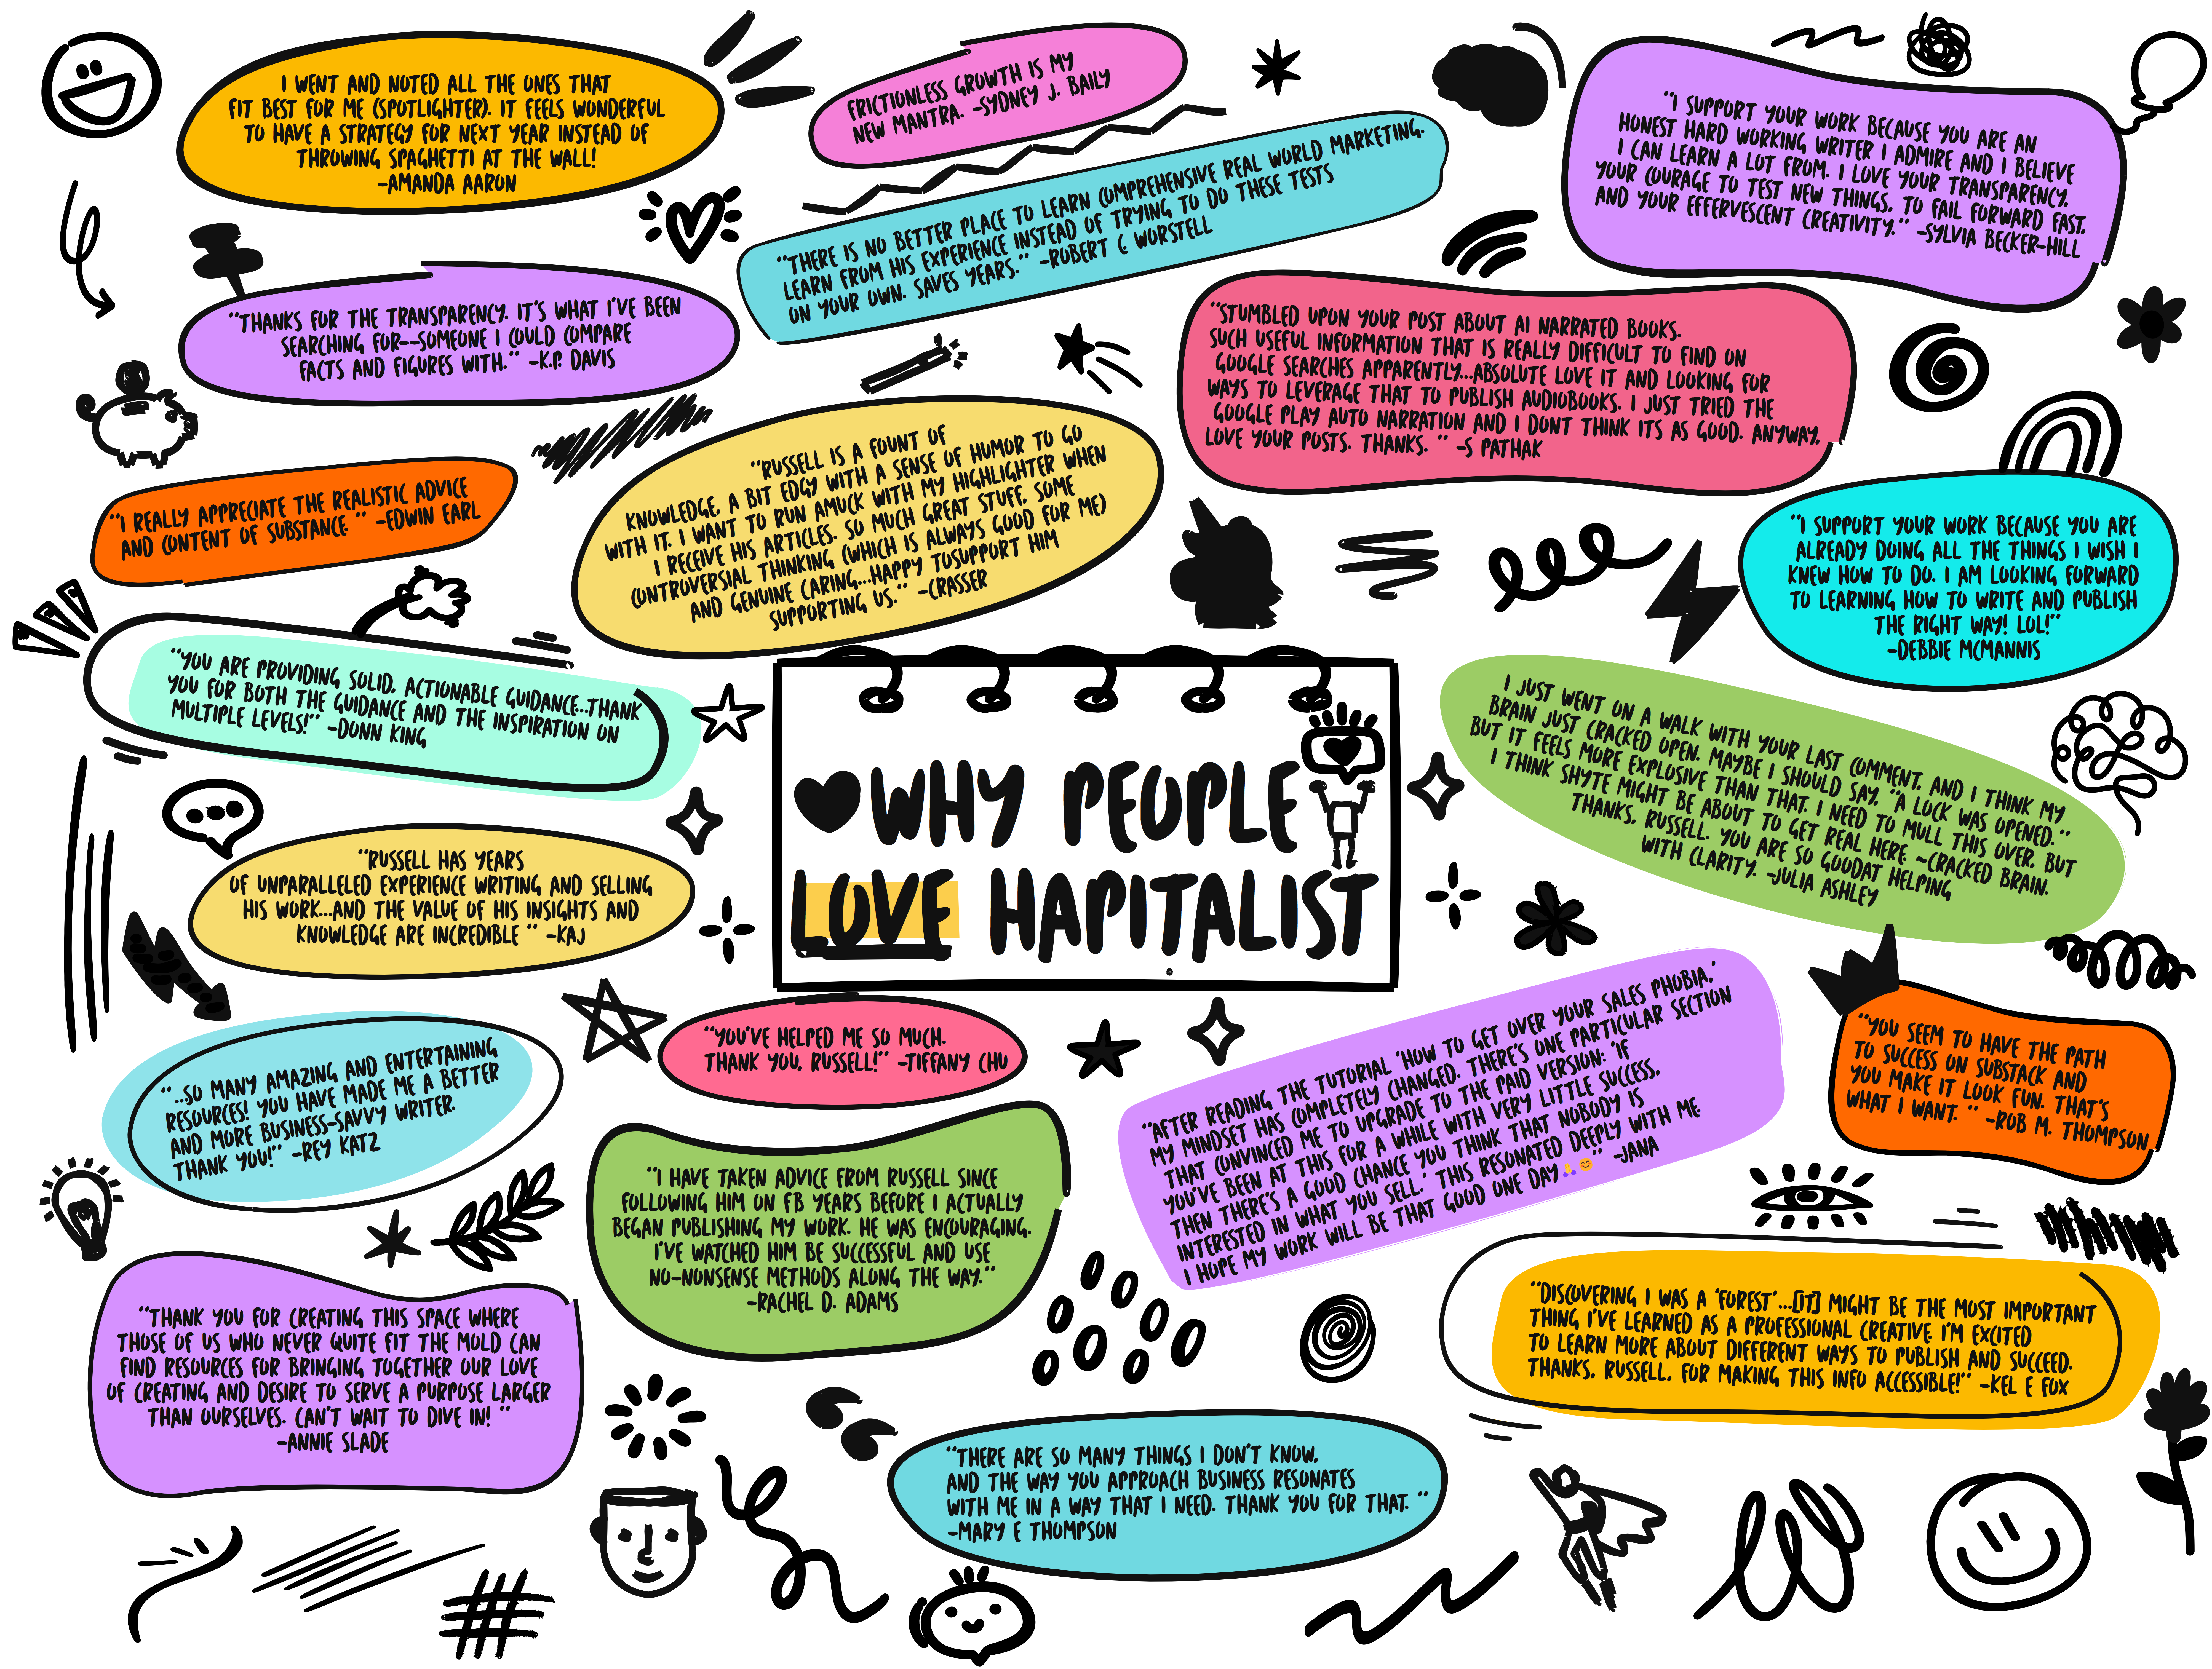 I WENT AND NOTED ALL THE ONES THAT
FIT BEST FOR ME (SPOTLIGHTER). IT FEELS WONDERFUL
TO HAVE A STRATEGY FOR NEXT YEAR INSTEAD OF
THROWING SPAGHETTI AT THE WALL!
-AMANDA AARON
FRICTIONLESS GROWTH IS MY
NEW MANTRA. -SYDNEY J. BAILY
"THERE IS NO BETTER PLACE TO LEARN COMPREHENSIVE REAL WORLD MARKETING.
LEARN FROM HIS EXPERIENCE INSTEAD OF TRYING TO DO THESE TESTS
ON YOUR OWN. SAVES YEARS." -ROBERT C WORSTELL
"I SUPPORT YOUR WORK BECAUSE YOU ARE AN
HONEST HARD WORKING WRITER I ADMIRE AND I BELIEVE
I CAN LEARN A LOT FROM. I LOVE YOUR TRANSPARENCY,
YOUR COURAGE TO TEST NEW THINGS, TO FAIL FORWARD FAST,
AND YOUR EFFERVESCENT CREATIVITY." -SYLVIA BECKER-HILL
"THANKS FOR THE TRANSPARENCY. IT'S WHAT I'VE BEEN
SEARCHING FOR--SOMEONE I COULD COMPARE
FACTS AND FIGURES WITH." -K.P. DAVIS
"STUMBLED UPON YOUR POST ABOUT AI NARRATED BOOKS.
SUCH USEFUL INFORMATION THAT IS REALLY DIFFICULT TO FIND ON
GOOGLE SEARCHES APPARENTLY...ABSOLUTE LOVE IT AND LOOKING FOR
WAYS TO LEVERAGE THAT TO PUBLISH AUDIOBOOKS. I JUST TRIED THE
GOOGLE PLAY AUTO NARRATION AND I DONT THINK ITS AS GOOD. ANYWAY,
LOVE YOUR POSTS. THANKS. " -S PATHAK
"I REALLY APPRECIATE THE REALISTIC ADVICE
AND CONTENT OF SUBSTANCE " -EDWIN EARL
"RUSSELL IS A FOUNT OF
KNOWLEDGE, A BIT EDGY WITH A SENSE OF HUMOR TO GO
WITH IT. I WANT TO RUN AMUCK WITH MY HIGHLIGHTER WHEN
I RECEIVE HIS ARTICLES. SO MUCH GREAT STUFF, SOME
CONTROVERSIAL THINKING (WHICH IS ALWAYS GOOD FOR ME)
AND GENUINE CARING...HAPPY TOSUPPORT HIM
SUPPORTING US." -CRASSER
"I SUPPORT YOUR WORK BECAUSE YOU ARE
ALREADY DOING ALL THE THINGS I WISH I
KNEW HOW TO DO. I AM LOOKING FORWARD
TO LEARNING HOW TO WRITE AND PUBLISH
THE RIGHT WAY! LOL!"
-DEBBIE MCMANNIS
"YOU ARE PROVIDING SOLID, ACTIONABLE GUIDANCE...THANK
YOU FOR BOTH THE GUIDANCE AND THE INSPIRATION ON
MULTIPLE LEVELS!" -DONN KING
WHY PEOPLE
LOVE HAPITALIST
I JUST WENT ON A WALK WITH YOUR LAST COMMENT, AND I THINK MY
BRAIN JUST CRACKED OPEN. MAYBE I SHOULD SAY, "A LOCK WAS OPENED."
BUT IT FEELS MORE EXPLOSIVE THAN THAT. I NEED TO MULL THIS OVER, BUT
I THINK SHYTE MIGHT BE ABOUT TO GET REAL HERE. ~CRACKED BRAIN.
THANKS, RUSSELL. YOU ARE SO GOODAT HELPING
WITH CLARITY. -JULIA ASHLEY
"RUSSELL HAS YEARS
OF UNPARALLELED EXPERIENCE WRITING AND SELLING
HIS WORK...AND THE VALUE OF HIS INSIGHTS AND
KNOWLEDGE ARE INCREDIBLE " -KAJ
"YOU'VE HELPED ME SO MUCH.
THANK YOU, RUSSELL!" -TIFFANY CHU
"...SO MANY AMAZING AND ENTERTAINING
RESOURCES! YOU HAVE MADE ME A BETTER
AND MORE BUSINESS-SAVVY WRITER.
THANK YOU!" -REY KATZ
"AFTER READING THE TUTORIAL 'HOW TO GET OVER YOUR SALES PHOBIA,'
MY MINDSET HAS COMPLETELY CHANGED. THERE'S ONE PARTICULAR SECTION
THAT CONVINCED ME TO UPGRADE TO THE PAID VERSION: 'IF
YOU'VE BEEN AT THIS FOR A WHILE WITH VERY LITTLE SUCCESS,
THEN THERE'S A GOOD CHANCE YOU THINK THAT NOBODY IS
INTERESTED IN WHAT YOU SELL.' THIS RESONATED DEEPLY WITH ME.
I HOPE MY WORK WILL BE THAT GOOD ONE DAY🙏😊" -JANA
"YOU SEEM TO HAVE THE PATH
TO SUCCESS ON SUBSTACK AND
YOU MAKE IT LOOK FUN. THAT'S
WHAT I WANT. " -ROB M. THOMPSON
"I HAVE TAKEN ADVICE FROM RUSSELL SINCE
FOLLOWING HIM ON FB YEARS BEFORE I ACTUALLY
BEGAN PUBLISHING MY WORK. HE WAS ENCOURAGING.
I'VE WATCHED HIM BE SUCCESSFUL AND USE
NO-NONSENSE METHODS ALONG THE WAY."
-RACHEL D. ADAMS
"THANK YOU FOR CREATING THIS SPACE WHERE
THOSE OF US WHO NEVER QUITE FIT THE MOLD CAN
FIND RESOURCES FOR BRINGING TOGETHER OUR LOVE
OF CREATING AND DESIRE TO SERVE A PURPOSE LARGER
THAN OURSELVES. CAN'T WAIT TO DIVE IN! "
-ANNIE SLADE
"DISCOVERING I WAS A 'FOREST'...[IT] MIGHT BE THE MOST IMPORTANT
THING I'VE LEARNED AS A PROFESSIONAL CREATIVE. I'M EXCITED
TO LEARN MORE ABOUT DIFFERENT WAYS TO PUBLISH AND SUCCEED.
THANKS, RUSSELL, FOR MAKING THIS INFO ACCESSIBLE!" -KEL E FOX
"THERE ARE SO MANY THINGS I DON'T KNOW,
AND THE WAY YOU APPROACH BUSINESS RESONATES
WITH ME IN A WAY THAT I NEED. THANK YOU FOR THAT. "
-MARY E THOMPSON